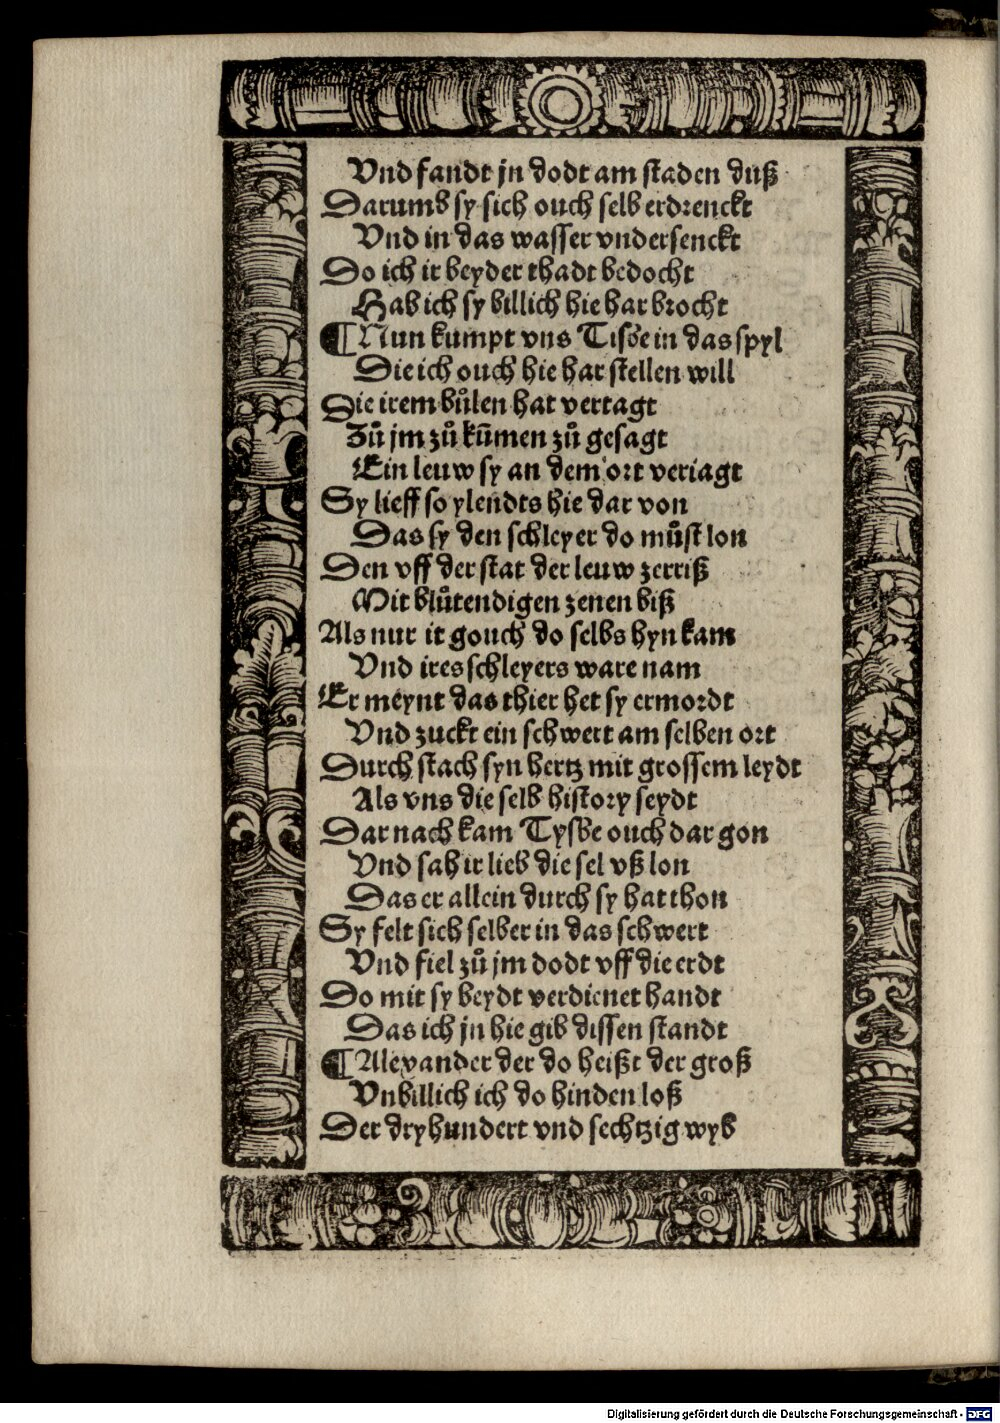 Vnd fandt jn dodt am staden duß
Darumb sy sich ouch selb erdrenckt
Vnd in das wasser vndersenckt
Do ich ir beyder thadt bedocht
Hab ich sy billich hie har brocht
¶ Nun kumpt vns Tisbe in das spyl
Die ich ouch hie har stellen will
Die irem bůlen hat vertagt
Zů jm zů kūmen zů gesagt
Ein leuw sy an dem ort veriagt
Sy lieff so ylendts hie dar von
Das sy den schleyer do můst lon
Den vff der stat der leuw zerriß
Mit blůtendigen zenen biß
Als nur ir gouch do selbs hyn kam
Vnd ires schleyers ware nam
Er meynt das thier het sy ermordt
Vnd zuckt ein schwert am selben ort
Durch stach syn hertz mit grossem leydt
Als vns die selb history seydt
Dar nach kam Tysbe ouch dar gon
Vnd sah ir lieb die sel vß lon
Das er allein durch sy hat thon
Sy felt sich selber in das schwert
Vnd fiel zů jm dodt vff die erdt
Do mit sy beydt verdienet handt
Das ich jn hie gib dissen standt
¶ Alexander der do heißt der groß
Vnbillich ich do hinden loß
Der dryhundert vnd sechtzig wyb
Digitalisierung gefördert durch die Deutsche Forschungsgemeinschaft - DFG